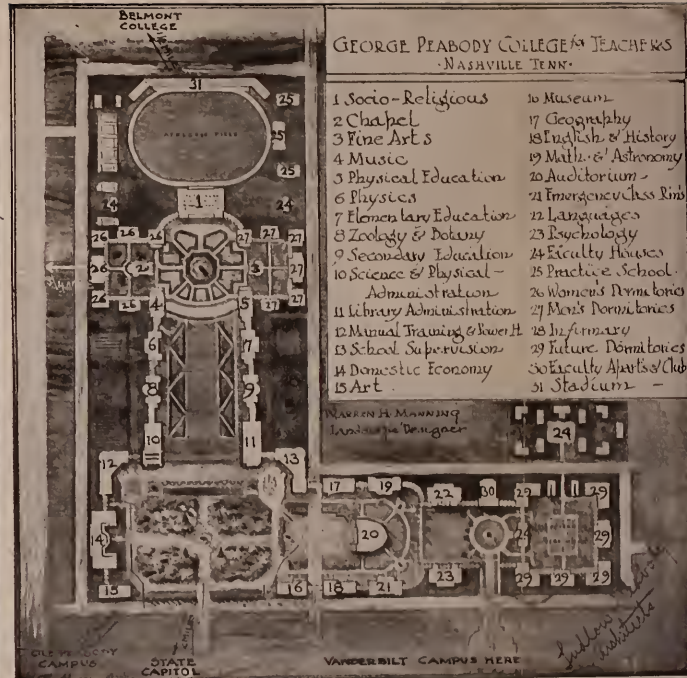 BELMONT
COLLEGE
GEORGE PEABODY COLLEGE for TEACHERS
·NASHVILLE TENN·
1 Socio-Religious
2 Chapel
3 Fine Arts
4 Music
5 Physical Education
6 Physics
7 Elementary Education
8 Zoology & Botany
9 Secondary Education
10 Science & Physical-
Administration
11 Library Administration
12 Manual Training & Power H
13 School Supervision
14 Domestic Economy
15 Art
16 Museum
17 Geography
18 English & History
19 Math. & Astronomy
20 Auditorium -
21 Emergency Class Rms
22 Languages
23 Psychology
24 Faculty Houses
25 Practice School
26 Women's Dormitories
27 Men's Dormitories
28 Infirmary
29 Future Dormitories
30 Faculty Aparts & Club
31 Stadium -
WARREN H MANNING
Landscape Designer
31
25
ATHLETIC FIELD
25
25
1
24
24
26 26 26 27 27 27
26 2 3 27
26 26 27 27
4 5
6 7
8 9
10 11
12 13
14
15
24
17 19 22 30 29 29
20
29
16 18 21 23 29 29 29
OLD PEABODY
CAMPUS
STATE
CAPITOL
VANDERBILT CAMPUS HERE
Ludlow & Peabody
architects